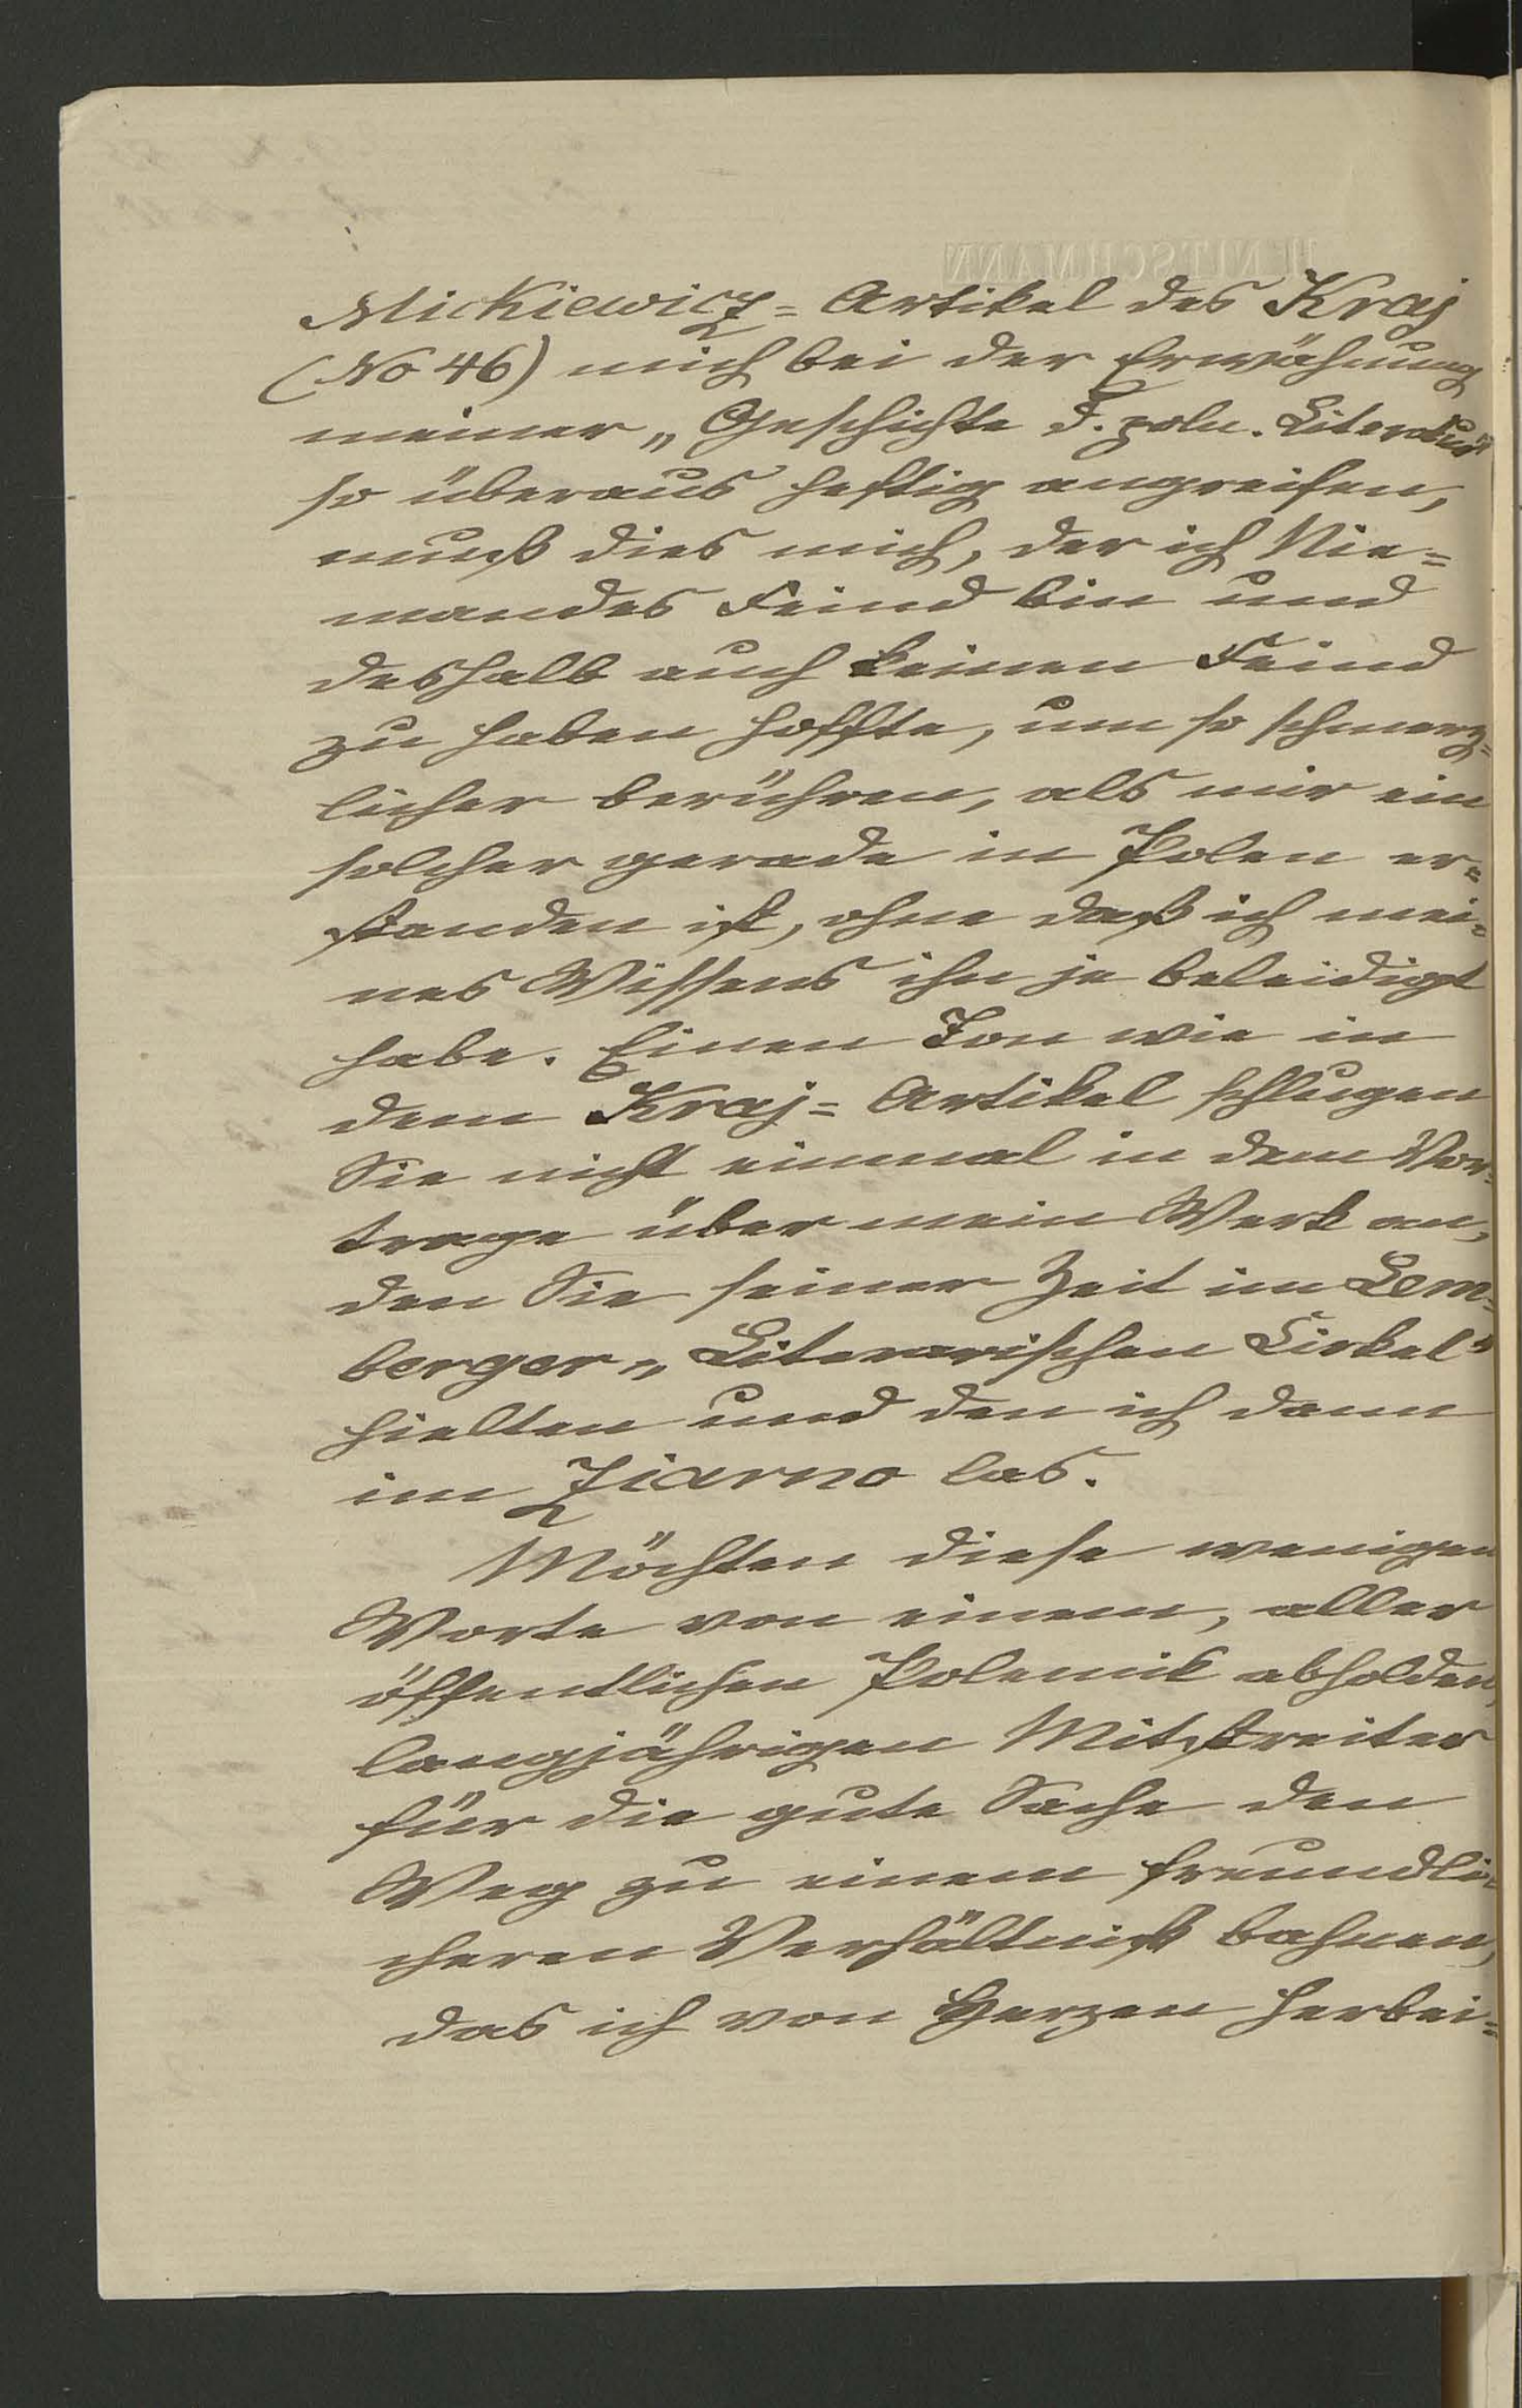 Mickiewicz=Artikel des Kraj
(No 46) mich bei der Erwähnung
meiner „Geschichte d. poln. Literatur"
so überaus heftig angreifen,
muß dies mich, der ich Nie=
mandes Feind bin und
deshalb auch keinen Feind
zu haben hoffte, um so schmerz=
licher berühren, als mir ein
solcher gerade in Polen er=
standen ist, ohne daß ich mei=
nes Wissens ihn je beleidigt
habe. Einen Ton wie in
dem Kraj=Artikel schlugen
Sie nicht einmal in dem Vor=
trage über mein Werk an,
den Sie seiner Zeit im Lem=
berger „Literarischen Cirkel"
hielten und den ich dann
im Ziarno las.
Möchten diese wenigen
Worte von einem, aller
öffentlichen Polemik abholden,
langjährigen Mitstreiter
für die gute Sache den
Weg zu einem freundli=
cheren Verhältniß bahnen,
das ich von Herzen herbei=